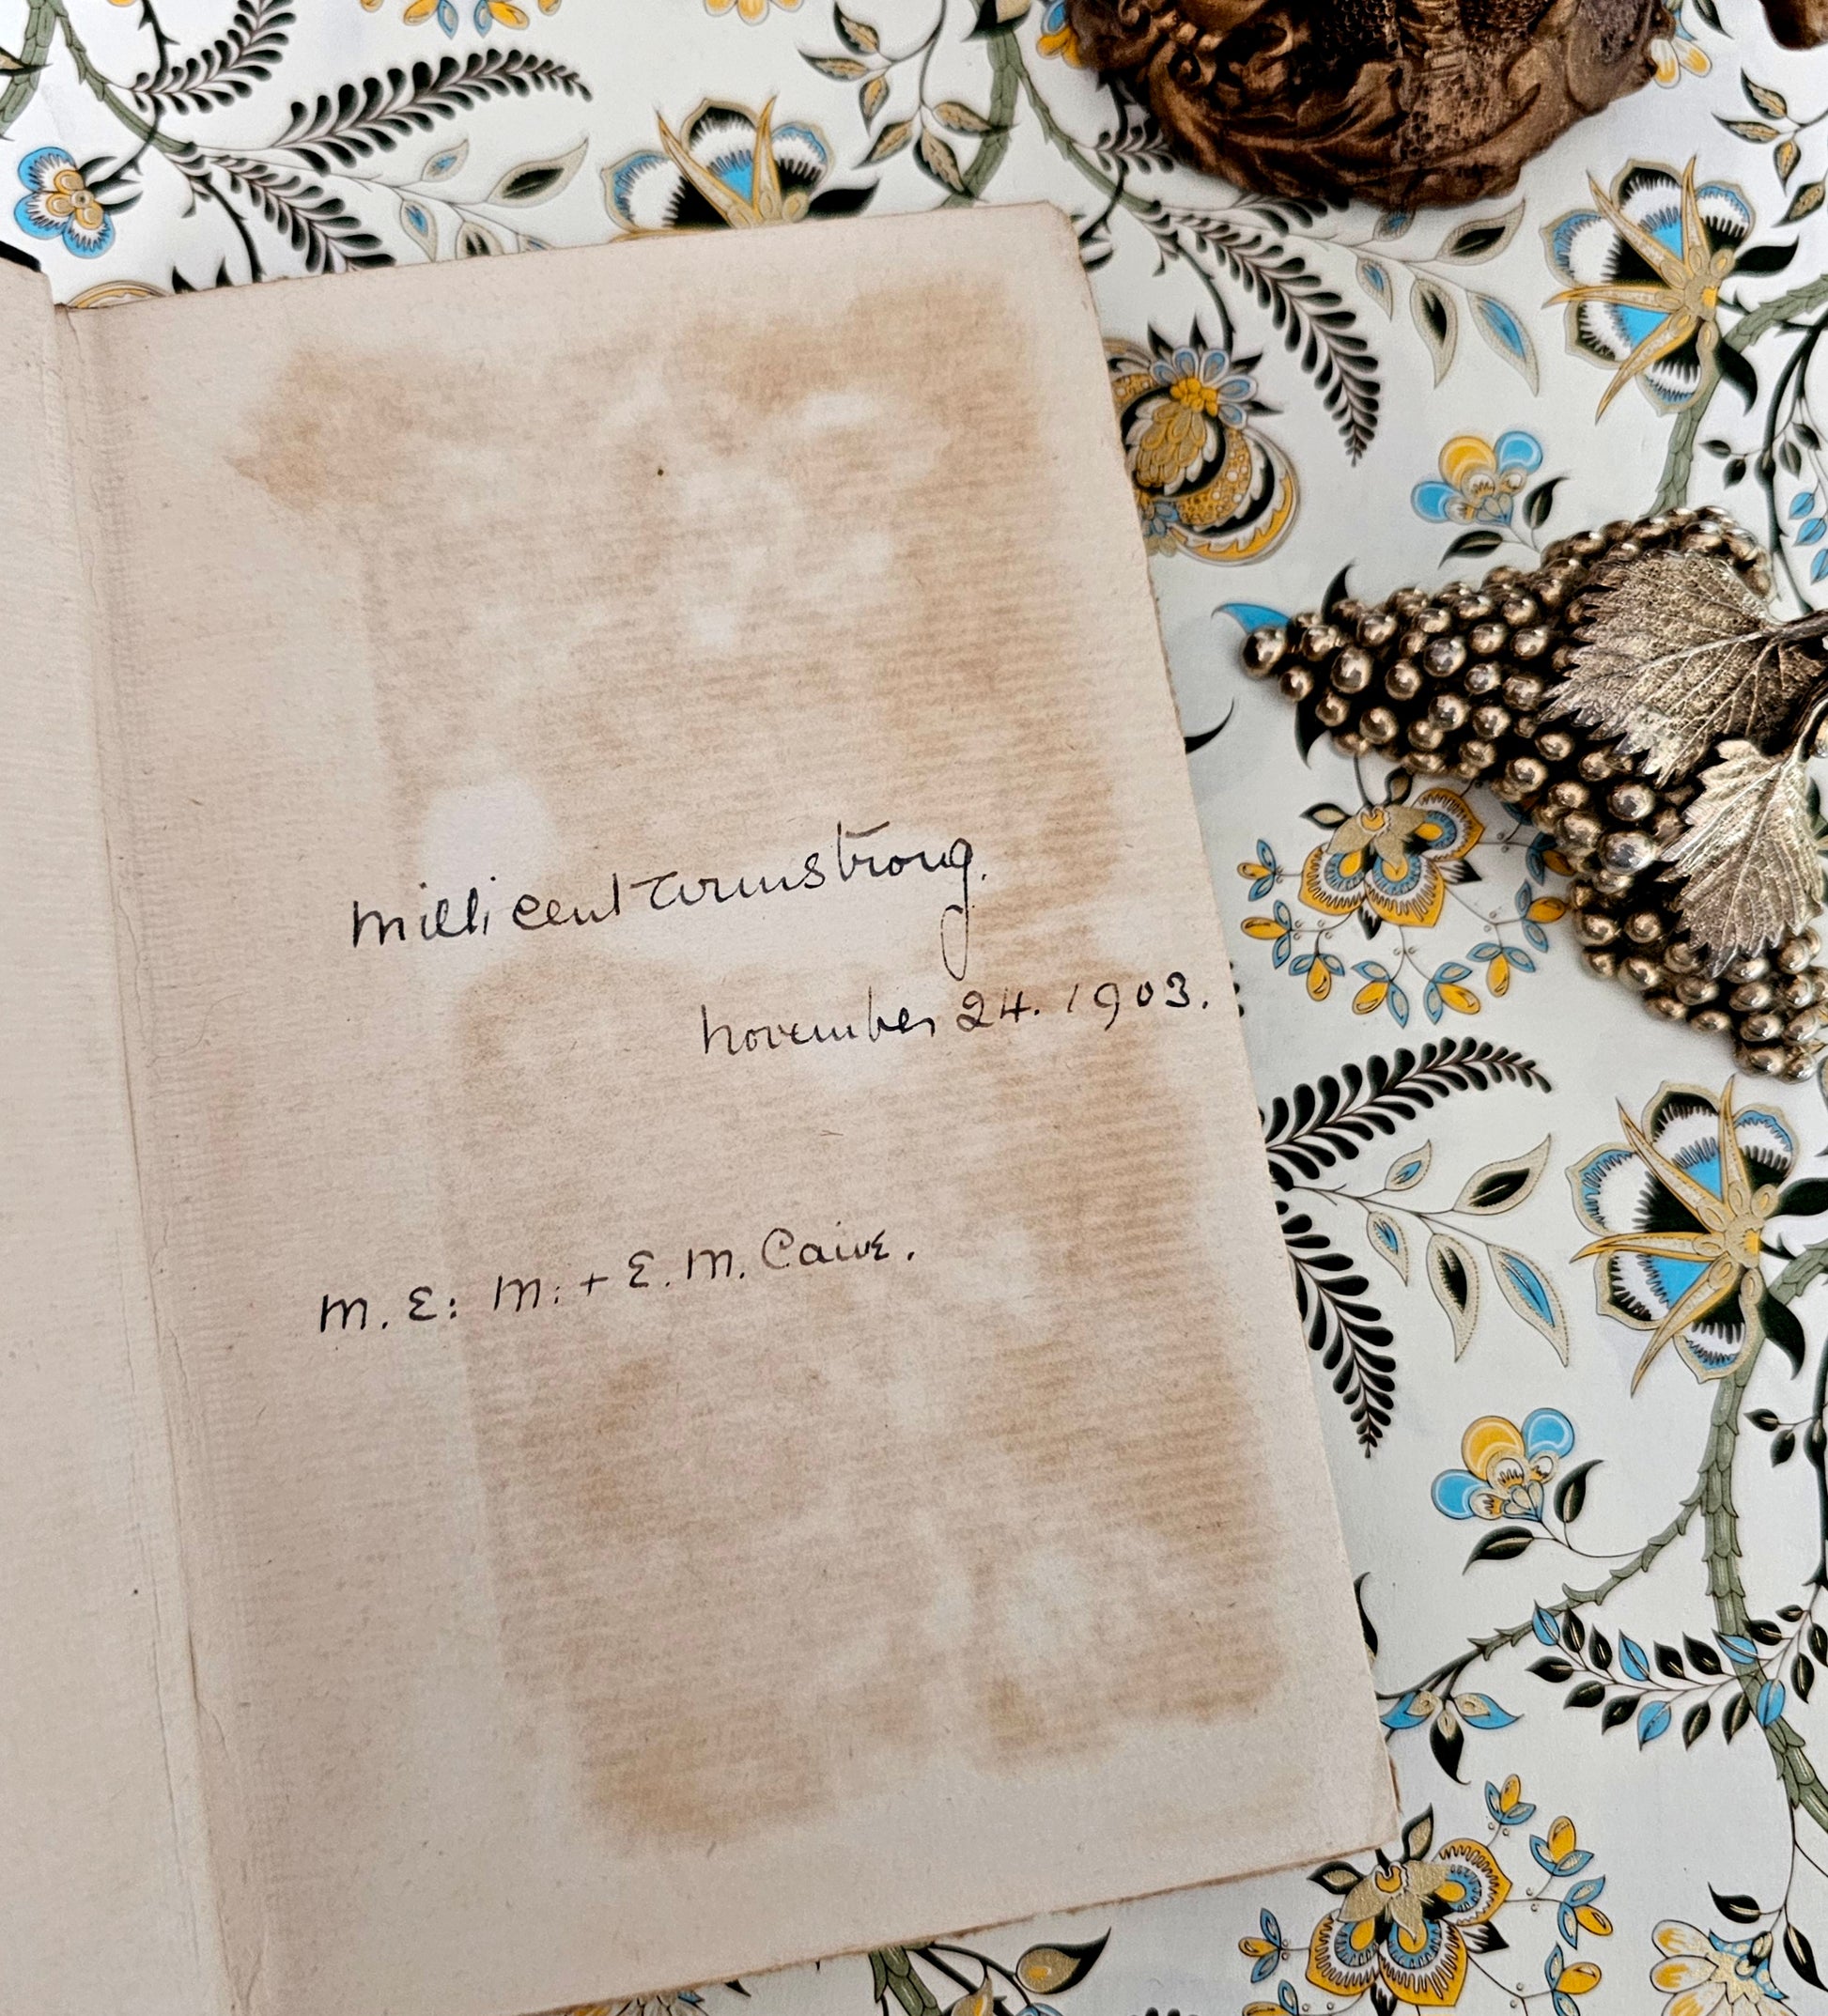 Millicent Armstrong.
November 24. 1903.
M. E: M: + E. M. Caive.